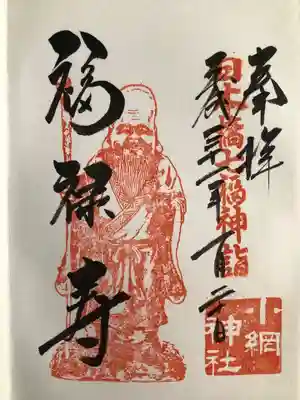 奉拝
日本橋七福神詣
年 月二日
福禄寿
小網
神社